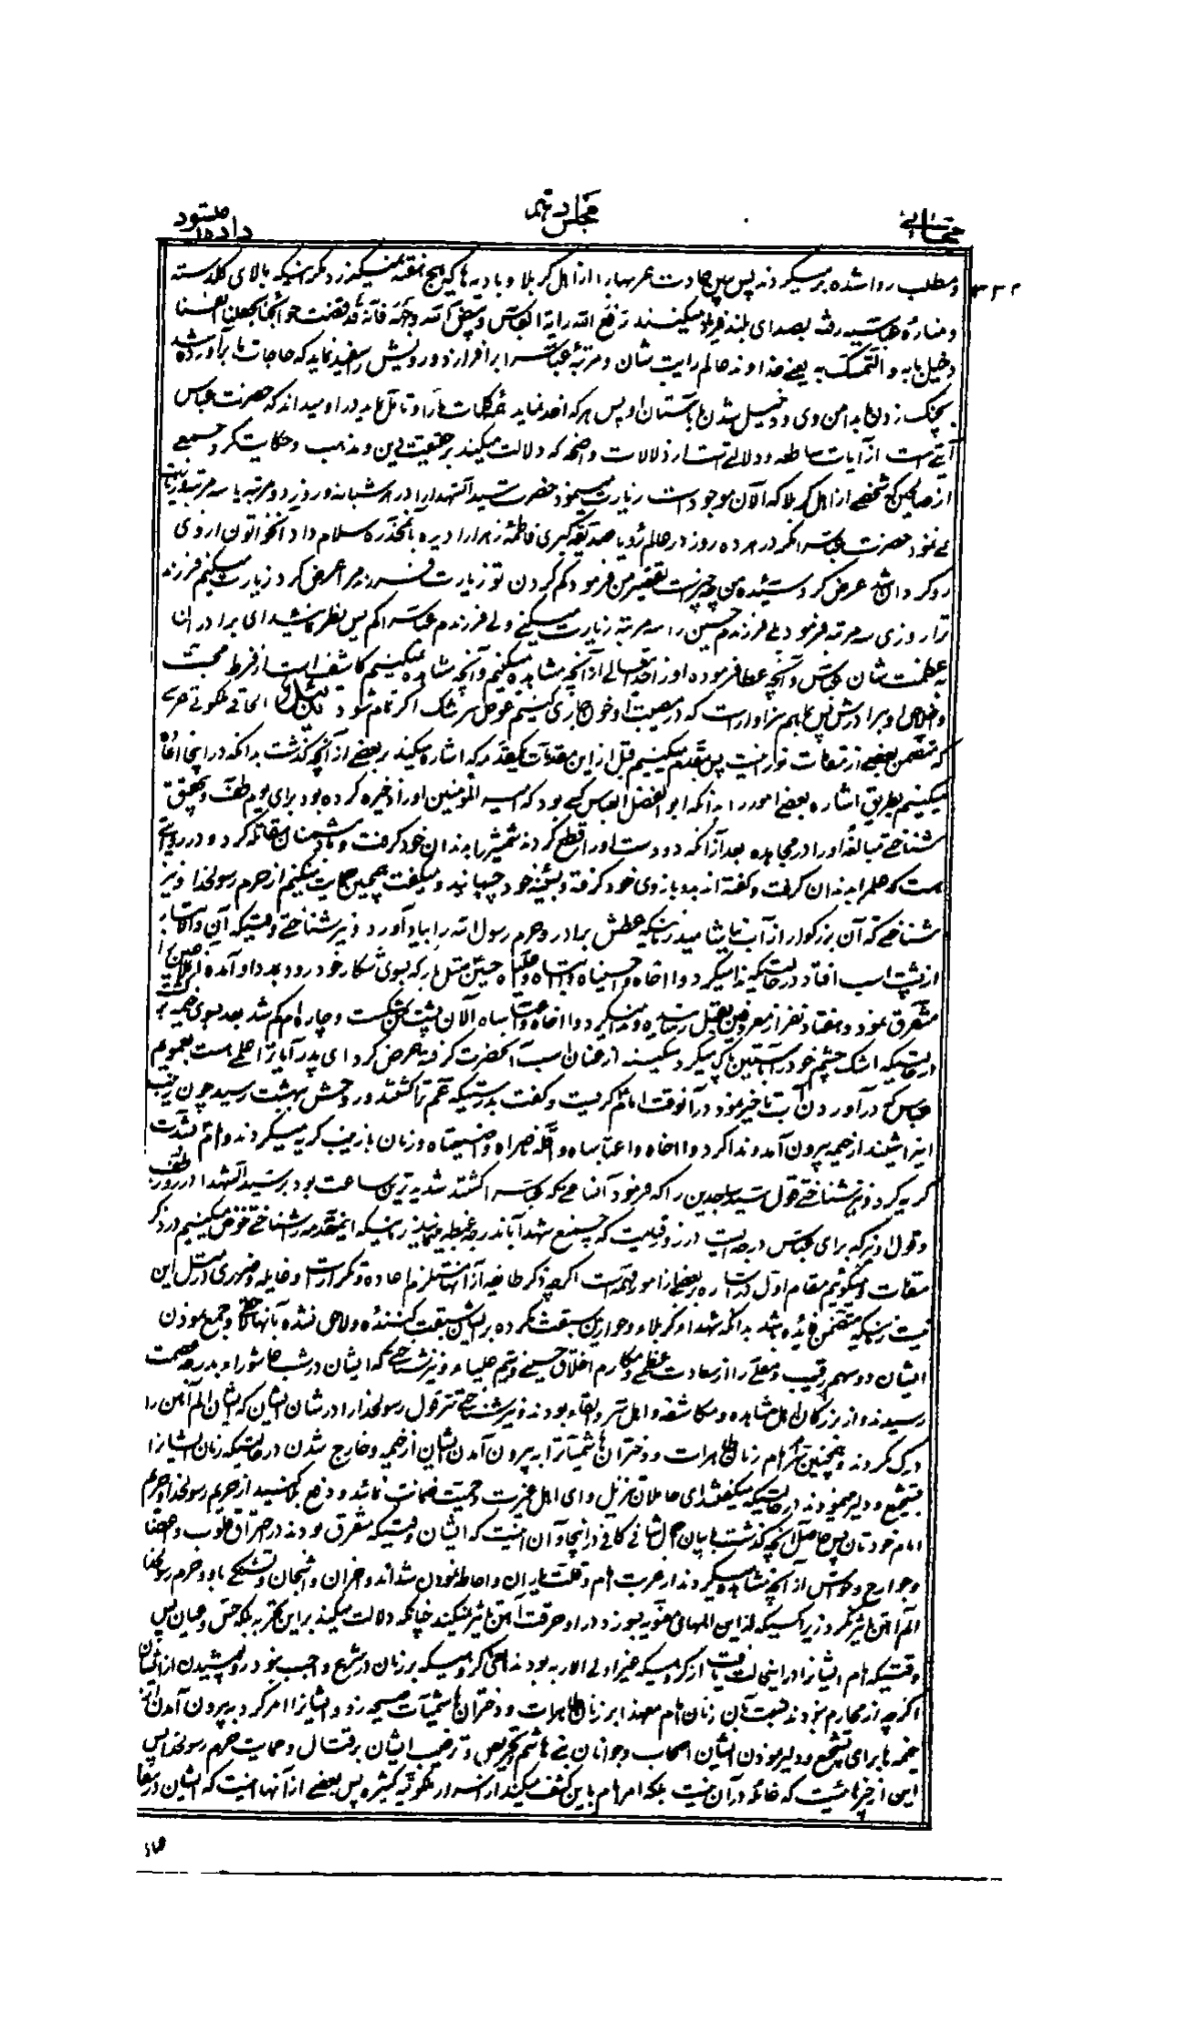 مجلس دهم
و مطلب روا شده بر میکردند پس چنین عادت عربها را از اهل کربلا و بادیه ها که هیچ نمیگذرد مگر اینکه بالای کلدسته
و مناره عباسیه رفته بصدای بلند فریاد میکنند رفع الله رایة العباس و بیض الله وجهه فانه قد قضیت حوائجنا
دخیل بابه و التمسک به یعنی خداوند عالم رایت شان و مرتبه عباس را برافرازد و رویش را سفید نماید که حاجات ما برآورده شد
بچنک زدن ما بدامن وی و دخیل شدن ما بآستان او پس هر که اخذ نماید این کلمات را و تامل نماید در او میداند که حضرت عباس
آیتی است از آیات ساطعه و دلالتی است از دلالات واضحه که دلالت میکند بر حقیقت دین و مذهب و حکایت کرد جمعی
از صالحین که شخصی از اهل کربلا که الآن موجود است زیارت مینمود حضرت سید الشهدا را در هر شبانه روز دو مرتبه یا سه مرتبه و زیارت
نمی نمود حضرت عباس را مگر در هر ده روز در عالم رؤیا صدیقه کبری فاطمه زهرا را دیده بآنمخدره سلام داد آنخواتون از وی
رو گردانید عرض کرد سیده من چه چیز است تقصیر من فرمود کم کردن تو زیارت فرزند مرا عرض کرد زیارت میکنم فرزند
ترا روزی سه مرتبه فرمود بلی فرزندم حسین را سه مرتبه زیارت میکنی ولی فرزندم عباس را کم پس نظر نمائید ای برادران
به عظمت شان عباس و آنچه عطا فرموده او را خدایتعالی از آنچه مشاهده میکنیم و آنچه مشاهده نمیکنیم کاشف است از فرط محبت
و اخلاص او ببرادرش پس ما هم سزاوار است که در مصیبت او خون جاری کنیم عوض سرشک اگر تمام شود
که متضمن بعضی از مقامات نورانیت پس مقدم میکنیم قبل از این مقدمات یکمقدمه که اشاره میکند بر بعضی از آنچه گذشت بدانکه در اینجا
میکنیم بطریق اشاره بعضی امور را بدانکه ابو الفضل العباس کسی بود که امیر المؤمنین او را ذخیره کرده بود برای یوم طف و بتحقیق
شناختی مبالغه او را در مجاهده بعد از آنکه دو دست او را قطع کردند شمشیر را بدندان خود گرفت و با دشمنان مقاتله کرد و در روایتی
است که علم را بدندان گرفت و گفته اند بدو بازوی خود گرفته و بسینه خود چسپانید و میگفت همچنین حمایت میکنیم از حرم رسولخدا و نیز
شناختی که آن بزرگوار از آب نیاشامید زمانیکه عطش برادر و حرم رسول الله را بیاد آورد و نیز شناختی وقتیکه آن والا
از پشت اسب افتاد در حالتیکه ندا میکرد وا اخاه وا حسیناه وا ابتاه وا علیاه حسین مثل بازی که بسوی شکار خود رود بمدد او آمده
متفرق نمود و هفتاد نفر از معروفین بقتل رسانیده و ندا میکرد وا اخاه وا عباساه الآن پشت من شکست و چاره ام کم شد بعد بسوی خیمه
در حالتیکه اشک چشم خود را بآستین پاک میکرد سکینه از عنان اسب آنحضرت گرفته عرض کرد ای پدر آیا ترا علمی هست بعمویم
عباس که در آوردن آب تاخیر نمود در آنوقت امام گریست و گفت بدرستیکه عم ترا کشتند و روحش ببهشت رسید چون زینب
اینرا شنید از خیمه بیرون آمد و ندا کرد وا اخاه وا عباساه وا قلة ناصراه وا ضیعتاه و زنان با زینب گریه میکردند و امام بشدت
گریه کرد و نیز شناختی قول سید الساجدین را که فرمود آنساعتی که عباس را کشتند شدیدترین ساعت بود بر سید الشهدا در روز طف
و قول او نیز که برای عباس درجه ایست در روز قیامت که جمیع شهدا بآن درجه غبطه مینمایند زمانیکه اینمقدمه را شناختی خوض میکنیم در ذکر
مقامات و میگوئیم مقام اول در اشاره ببعضی از امور مهمه است اگرچه ذکر طایفه از آنها مستلزم اعاده و تکرار است و فایده و ضرری در مثل این
نیست زمانیکه متضمن فائده باشد بدانکه شهداء کربلا و حواریین سبقت نکرده بر ایشان سبقت کننده و لاحق نشده بآنها لاحقی و جمع نمودن
ایشان دو سهم رقیب و معلی را از سعادت عظمی و مکارم اخلاق حسینی و تیم علیاء و نیز شناختی که ایشان در شب عاشورا بدرجه عصمت
رسیدند و از بزرگان اهل مشاهده و مکاشفه و اهل سر و بقاء بودند و نیز شناختی قول رسولخدا را در شان ایشان که ایشان الم آهن را
درک نکردند و همچنین امر امام زنان طاهرات و دختران هاشمیات را به بیرون آمدن ایشان از خیمه و خارج شدن در حالتیکه زنان ایشانرا
تشجیع و دلیر مینمودند در حالتیکه میگفتند ای حاملان تنزیل و ای اهل غیرت و حمیت ضمانت نمائید و دفع کنید از حریم رسولخدا و حریم
امام خودتان پس حاصل آنچه گذشت با بیان اجمال شافی کافی در اینجا و آن اینست که ایشان وقتیکه متفرق بودند در احتراق قلوب و اعضا
و جوارح و حواس از آنچه مشاهده میکردند از غربت امام و قلت یاران و احاطه نمودن شدائد و احزان و اشجان و تشنگی باو و حرم رسولخدا
الم آهن تاثیر نکرد زیرا کسیکه از این المهای معنویه بسوزد در او حرقت آهن تاثیر نمیکند چنانکه دلالت میکند بر این تجربه بلکه حس و عیان پس
وقتیکه امام ایشانرا در اینحالت یافت
اگرچه از محارم نبودند نسبت بآن زنان امام معهذا بر زنان طاهرات و دختران هاشمیات صیحه زد و ایشانرا امر کرد به بیرون آمدن از
خیمه ها برای تشجیع و دلیر نمودن ایشان اصحاب و جوانان بنی هاشم را و تحریص و ترغیب ایشان بر قتال و حمایت حرم رسولخدا پس
این از چیزهائیست که غائله در آن نیست بلکه امر امام باین کشف میکند از اسرار ملکوتیه کثیره پس بعضی از آنها اینست که ایشان